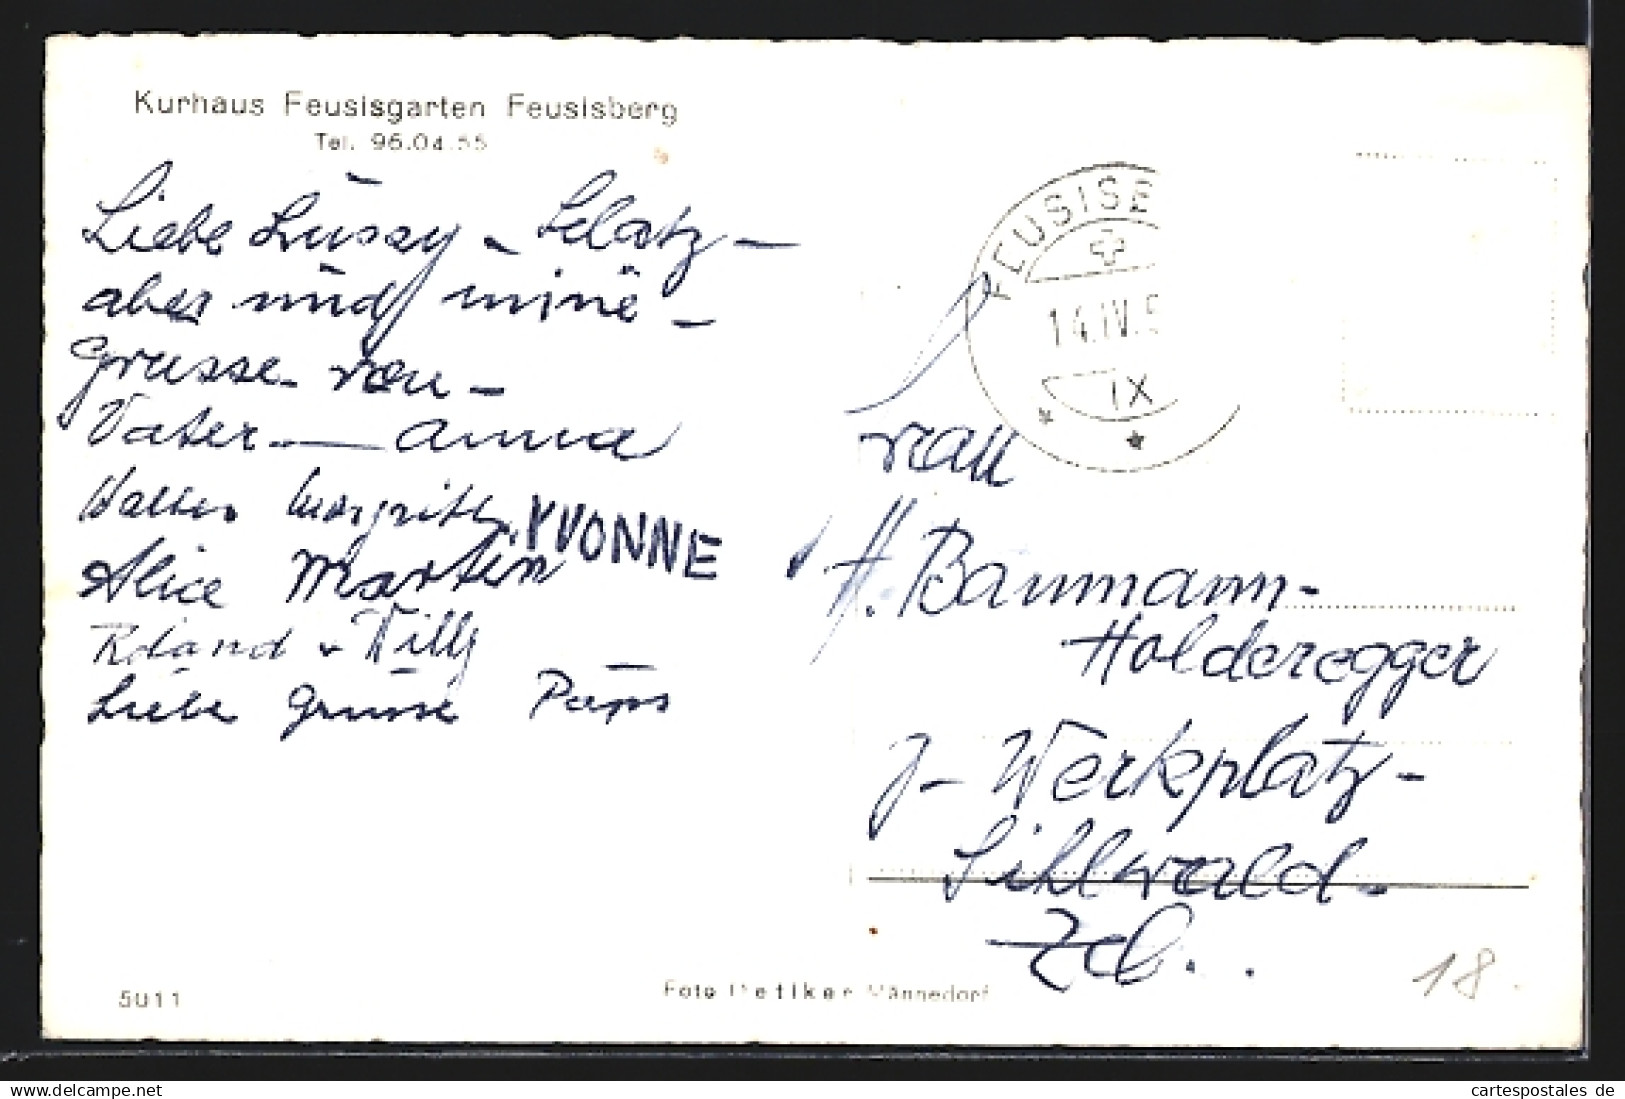 Kurhaus Feusisgarten Feusisberg
Tel. 96.04.55
Liebe Lüssy -
aber und mine -
Grüsse von -
Vater — Anna
Walter Margrith, YVONNE
Alice Martin
Roland + Willy
Liebe Grüsse Paps
FEUSISB
14.IV.5
IX
H. Baumann-
Holderegger
J- Werkplatz-
Sihlwald.
Zch..
18.
5011
Foto Oetiker Männedorf
cartespostales de